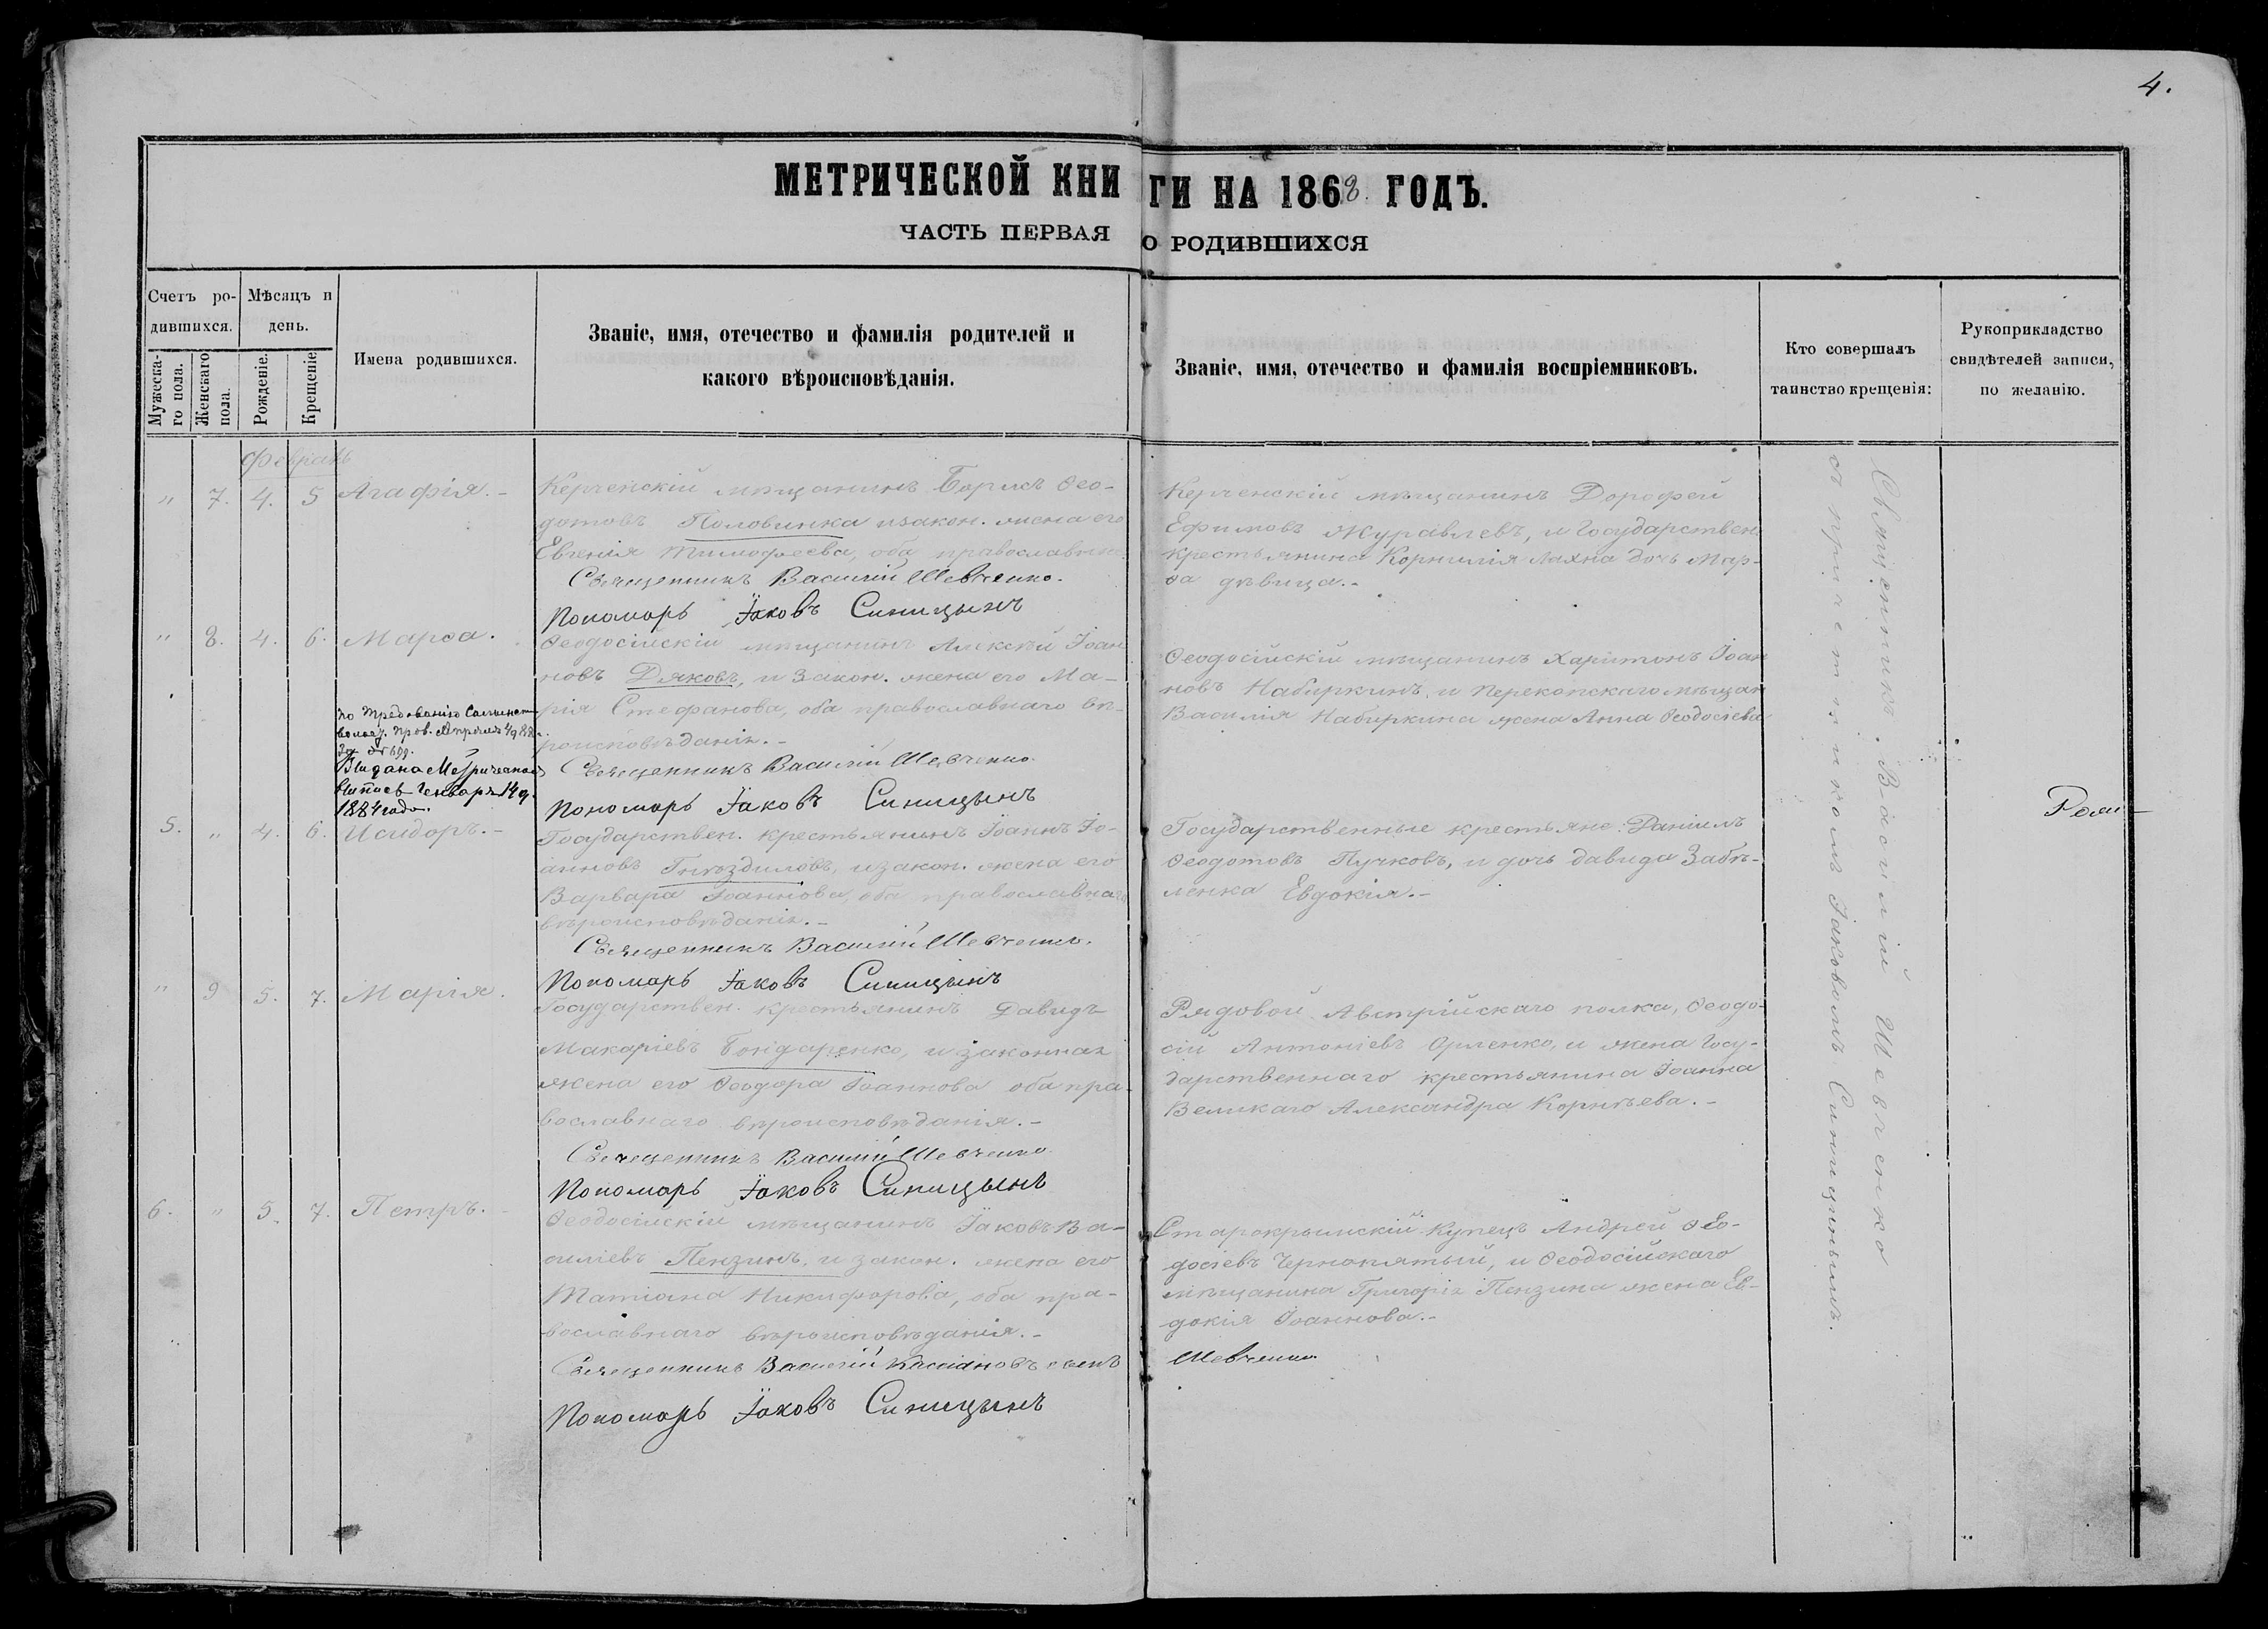 4.
МЕТРИЧЕСКОЙ КНИГИ НА 1868. ГОДЪ.
ЧАСТЬ ПЕРВАЯ О РОДИВШИХСЯ
Счетъ ро-
дившихся.
Мужеска-
го пола.
Женскаго
пола.
Мѣсяцъ и
день.
Рожденіе.
Крещеніе.
Имена родившихся.
Званіе, имя, отечество и фамилія родителей и
какого вѣроисповѣданія.
Званіе, имя, отечество и фамилія воспріемниковъ.
Кто совершалъ
таинство крещенія:
Рукоприкладство
свидѣтелей записи,
по желанію.
Февраль
" 7. 4. 5 Агафія.-
Керченскій мѣщанинъ Борисъ Ѳео-
дотовъ Половинка изакон. жена его
Евгенія Тимофеева, оба православн.
Священникъ Василій Шевченко.
Пономарь Іаковъ Синицынъ
Керченскій мѣщанинъ Дорофей
Ефимовъ Журавлевъ, и Государствен.
крестьянина Корнилія Лахна дочь Мар-
ѳа дѣвица.-
" 8. 4. 6. Марѳа.
Ѳеодосійскій мѣщанинъ Алексѣй Іоан
новъ Дяковъ, и закон. жена его Ма-
рія Стефанова, оба православнаго вѣ-
роисповѣданія.-
Священникъ Василій Шевченко.
Пономарь Іаковъ Синицынъ
Ѳеодосійскій мѣщанинъ Харитонъ Іоан
новъ Набиркинъ, и Перекопскаго мѣщан
Василія Набиркина жена Анна Ѳеодосіева
по требованію
Выдана Метрическая
выпись Генваря 14 д.
1884 года.
5. " 4. 6. Исидоръ.-
Государствен. крестьянинъ Іоаннъ Іо-
анновъ Гнѣздиловъ, изакон. жена его
Варвара Іоаннова, оба православнаго
вѣроисповѣданія.-
Священникъ Василій Шевченко.
Пономарь Іаковъ Синицынъ
Государственные крестьяне: Даніилъ
Ѳеодотовъ Пучковъ, и дочь Давида Забѣ-
ленка Евдокія.-
" 9 5. 7. Марія.
Государствен. крестьянинъ Давидъ
Макаріевъ Бондаренко, и законная
жена его Ѳеодора Іоаннова оба пра-
вославнаго вѣроисповѣданія.-
Священникъ Василій Шевченко
Пономарь Іаковъ Синицынъ
Рядовой Австрійскаго полка, Ѳеодо-
сій Антоніевъ Орленко, и жена Госу-
дарственнаго крестьянина Іоанна
Великаго Александра Корнѣева.-
6. " 5. 7. Петръ.-
Ѳеодосійскій мѣщанинъ Іаковъ Ва-
силіевъ Пензинъ, и закон. жена его
Татіана Никифорова, оба пра-
вославнаго вѣроисповѣданія.-
Священникъ Василій Кассіановъ сынъ Шевченко
Пономарь Іаковъ Синицынъ
Старокрымскій Купецъ Андрей Ѳео-
досіевъ Чернопятый, и Ѳеодосійскаго
мѣщанина Григорія Пензина жена Ев-
докія Іоаннова.-
Священникъ Василій Шевченко
съ причетникомъ Іаковомъ Синицинымъ.